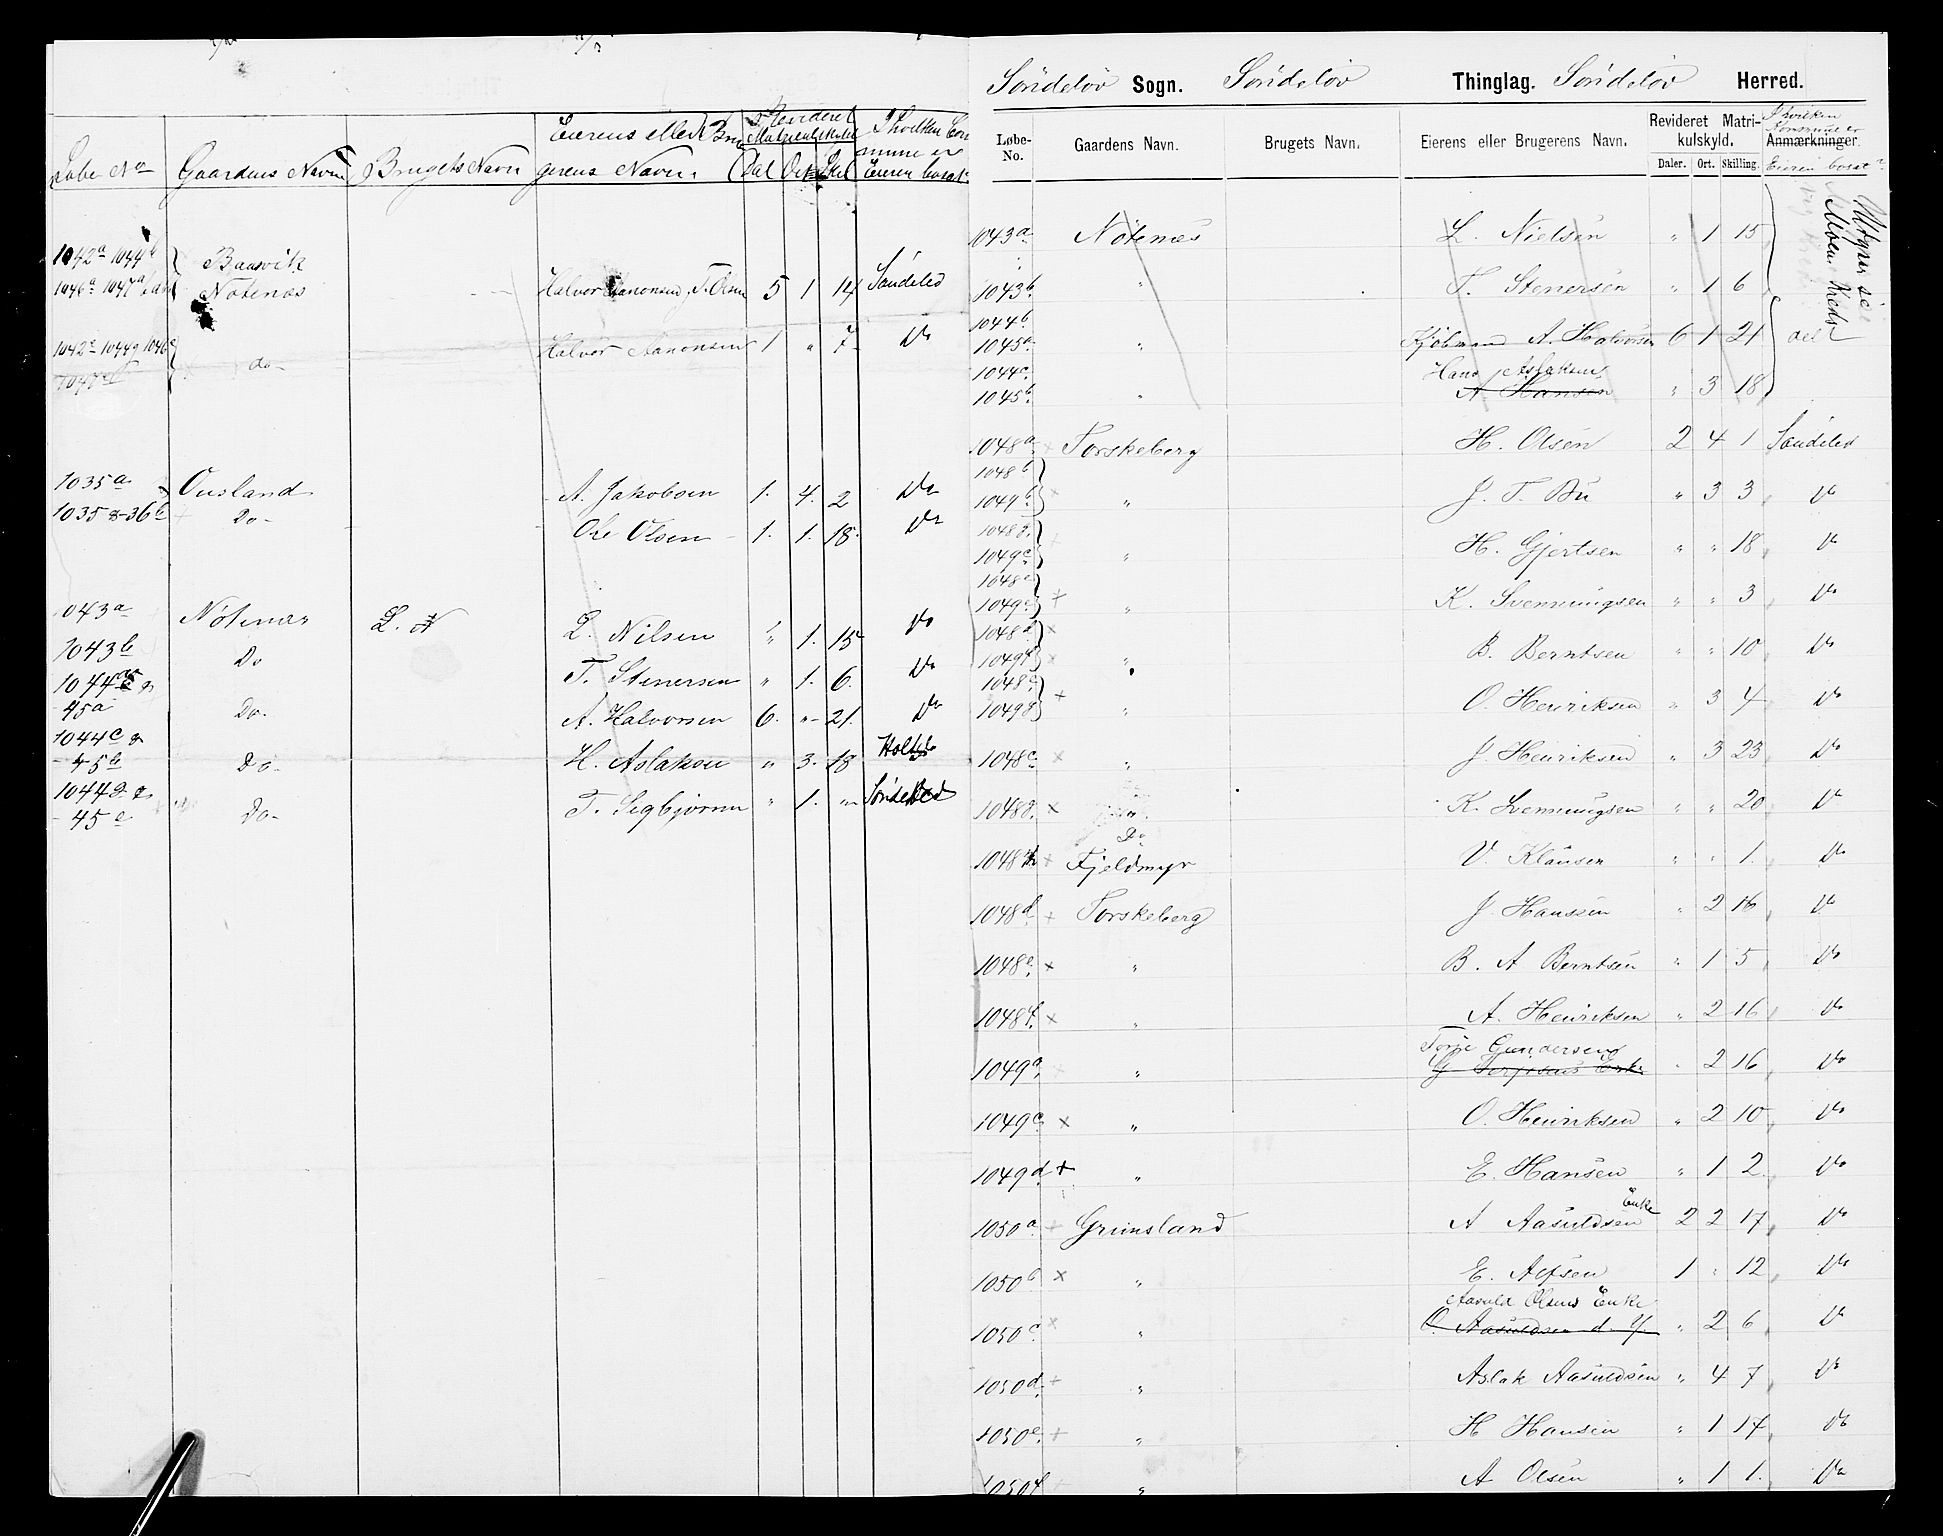 Löbe No Gaardens Navn Brugets Navn Eierens eller Bru gerens Navn. Revideret Matrikulskyld Dal Ort Skil I hvilken Com mune er Eieren bosat
1042a 1044b Baasvik
1046a 1047a Nøtenæs Halvor Aanonsen, T. Olsen 5 1 14 Søndeled
1042c 1044g 1046c do- Halvor Aanonsen 1 " 7 Do
1047d
1035a Ousland A. Jakobsen 1. 4. 2 Do
1035 & 36b Do- Ole Olsen 1. 1. 18. Do
1043a Nøtenæs L. N L. Nilsen " 1. 15 Do
1043b Do T. Stenersen " 1. 6. Do
1044 &
45a Do. A. Halvorsen 6. " 21. Do
1044c &
45b Do. H. Aslaksen " 3. 18
1044d &
45c Do- T. Sigbjørnsen " 1. " Søndeled
Søndeløv Sogn. Søndeløv Thinglag. Søndeløv Herred.
Løbe-No. Gaardens Navn. Brugets Navn. Eierens eller Brugerens Navn. Revideret Matrikulskyld. Daler. Ort. Skilling. Anmærkninger. I hvilken Kommune er Eieren bosat?
1043a Nøtenæs L. Nielsen " 1 15
1043b. " T. Stenersen " 1 6
1044b.
1045a. " Kjøbmand A. Halvorsen 6 1 21
1044c. Hans Aslaksen
1045b. " A Hansen " 3 18
1048a Torskeberg H. Olsen 2 4 1 Søndeled
1048b
1049b. " J. T. Bu " 3 3 Do
1048g.
1049c " H. Gjertsen " " 18 Do
1048c
1049e. " K. Svenningsen " " 3 Do
1048d
1049f. " B. Berntsen " " 10 Do
1048e
1049g " O. Henriksen " 3 4 Do
1048c. " J. Henriksen " 3 23 Do
1048g. " K. Svenningsen " " 20 Do
Do
1048h Fjeldmyr V. Klausen " " 1. Do
1048d Torskeberg J. Hanssen " 2 16 Do
1048e. " B. A Berntsen " 1 5 Do
1048f. " A. Henriksen " 2 16 Do
Torje Gundersen
1049a. " G Terjesens Enke " 2 16 Do
1049c. " O. Henriksen " 2 10 Do
1049d. " E. Hansen " 1 2 Do
1050a. Grimsland A Aasuldsen Enke 2 2 17 Do
1050b " E. Alfsen 1 " 12 Do
Aasuld Olsens Enke
1050c. " O. Aasuldsen d. y. " 2 6 Do
1050d. " Aslak Aasuldsen " 4 7 Do
1050e. " H Hansen " 1 17 Do
1050f " A Olsen " 1 1. Do